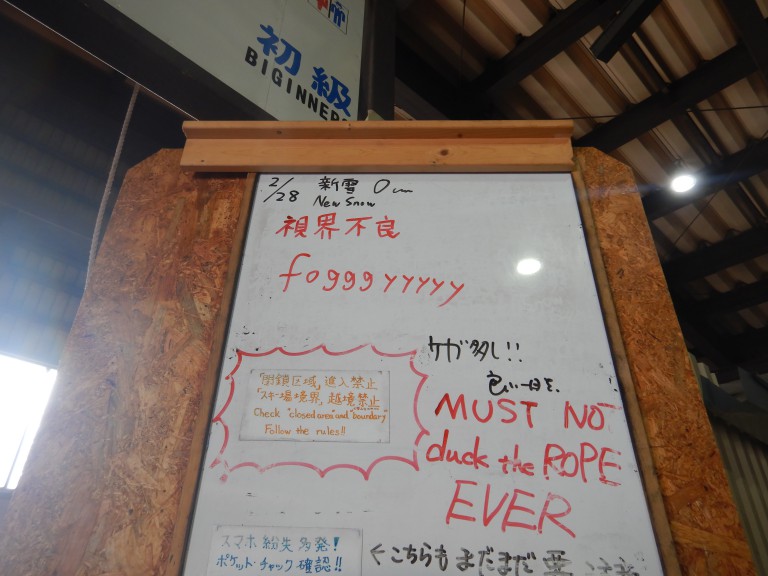 初級
BIGINNER
2/28 新雪 0cm
New Snow
視界不良
fogggyyyyy
ケガ多し!!
良い一日を.
「閉鎖区域」進入禁止
「スキー場境界」越境禁止
Check "closed area" and "boundary"
Follow the rules!!
MUST NO
duck the ROPE
EVER
スマホ紛失多発!
ポケット・チャック確認!!
←こちらもまだまだ要注意